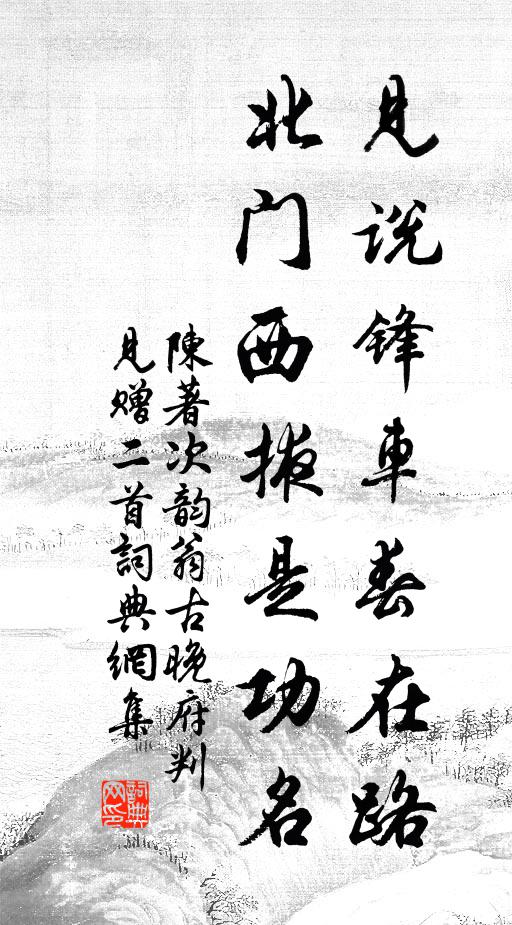 见说锋車春在路
北门西掖是功名
陳著次韵翁古晚府判
見赠二首詞典網集
詞典网印